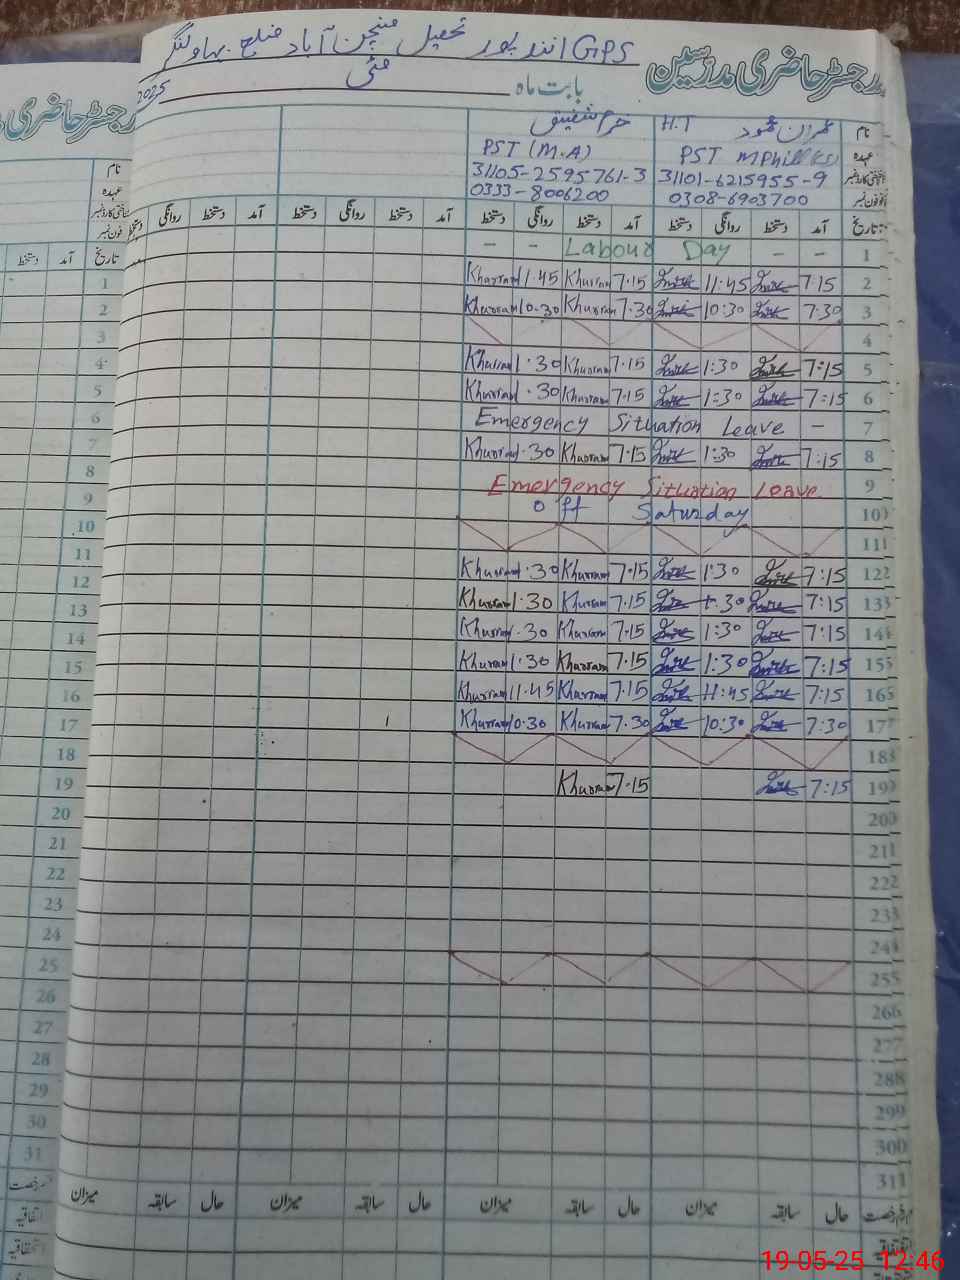 GPS انند پور تحصیل منچن آباد ضلع بہاولنگر
رجسٹر حاضری مدرسین
بابت ماہ مئی 2025
نام عمران محمود H.T خرم شفیق
عہدہ PST MPhill PST (M.A)
شناختی کارڈ نمبر 31101-6215955-9 31105-2595761-3
فون نمبر 0308-6903700 0333-8006200
تاریخ آمد دستخط روانگی دستخط آمد دستخط روانگی دستخط آمد دستخط روانگی دستخط آمد دستخط روانگی دستخط
1 - - Labour Day - -
2 7:15 11:45 7.15 Khurram 11.45 Khurram
3 7:30 10:30 7.30 Khurram 10.30 Khurram
4
5 7:15 1:30 7.15 Khurram 1.30 Khurram
6 7:15 1:30 7.15 Khurram 1.30 Khurram
7 Emergency Situation Leave -
8 7:15 1:30 7.15 Khurram 1.30 Khurram
9 Emergency Situation Leave
10 Off Saturday
11
12 7:15 1:30 7.15 Khurram 1.30 Khurram
13 7:15 1:30 7.15 Khurram 1.30 Khurram
14 7:15 1:30 7.15 Khurram 1.30 Khurram
15 7:15 1:30 7.15 Khurram 1.30 Khurram
16 7:15 11:45 7.15 Khurram 11.45 Khurram
17 7:30 10:30 7.30 Khurram 10.30 Khurram
18
19 7:15 7.15 Khurram
20
21
22
23
24
25
26
27
28
29
30
31
حال سابقہ میزان حال سابقہ میزان حال سابقہ میزان حال سابقہ میزان
رجسٹر حاضری
نام
عہدہ
فون نمبر
تاریخ آمد دستخط
1
2
3
4
5
6
7
8
9
10
11
12
13
14
15
16
17
18
19
20
21
22
23
24
25
26
27
28
29
30
31
اتفاقیہ
19-05-25 12:46